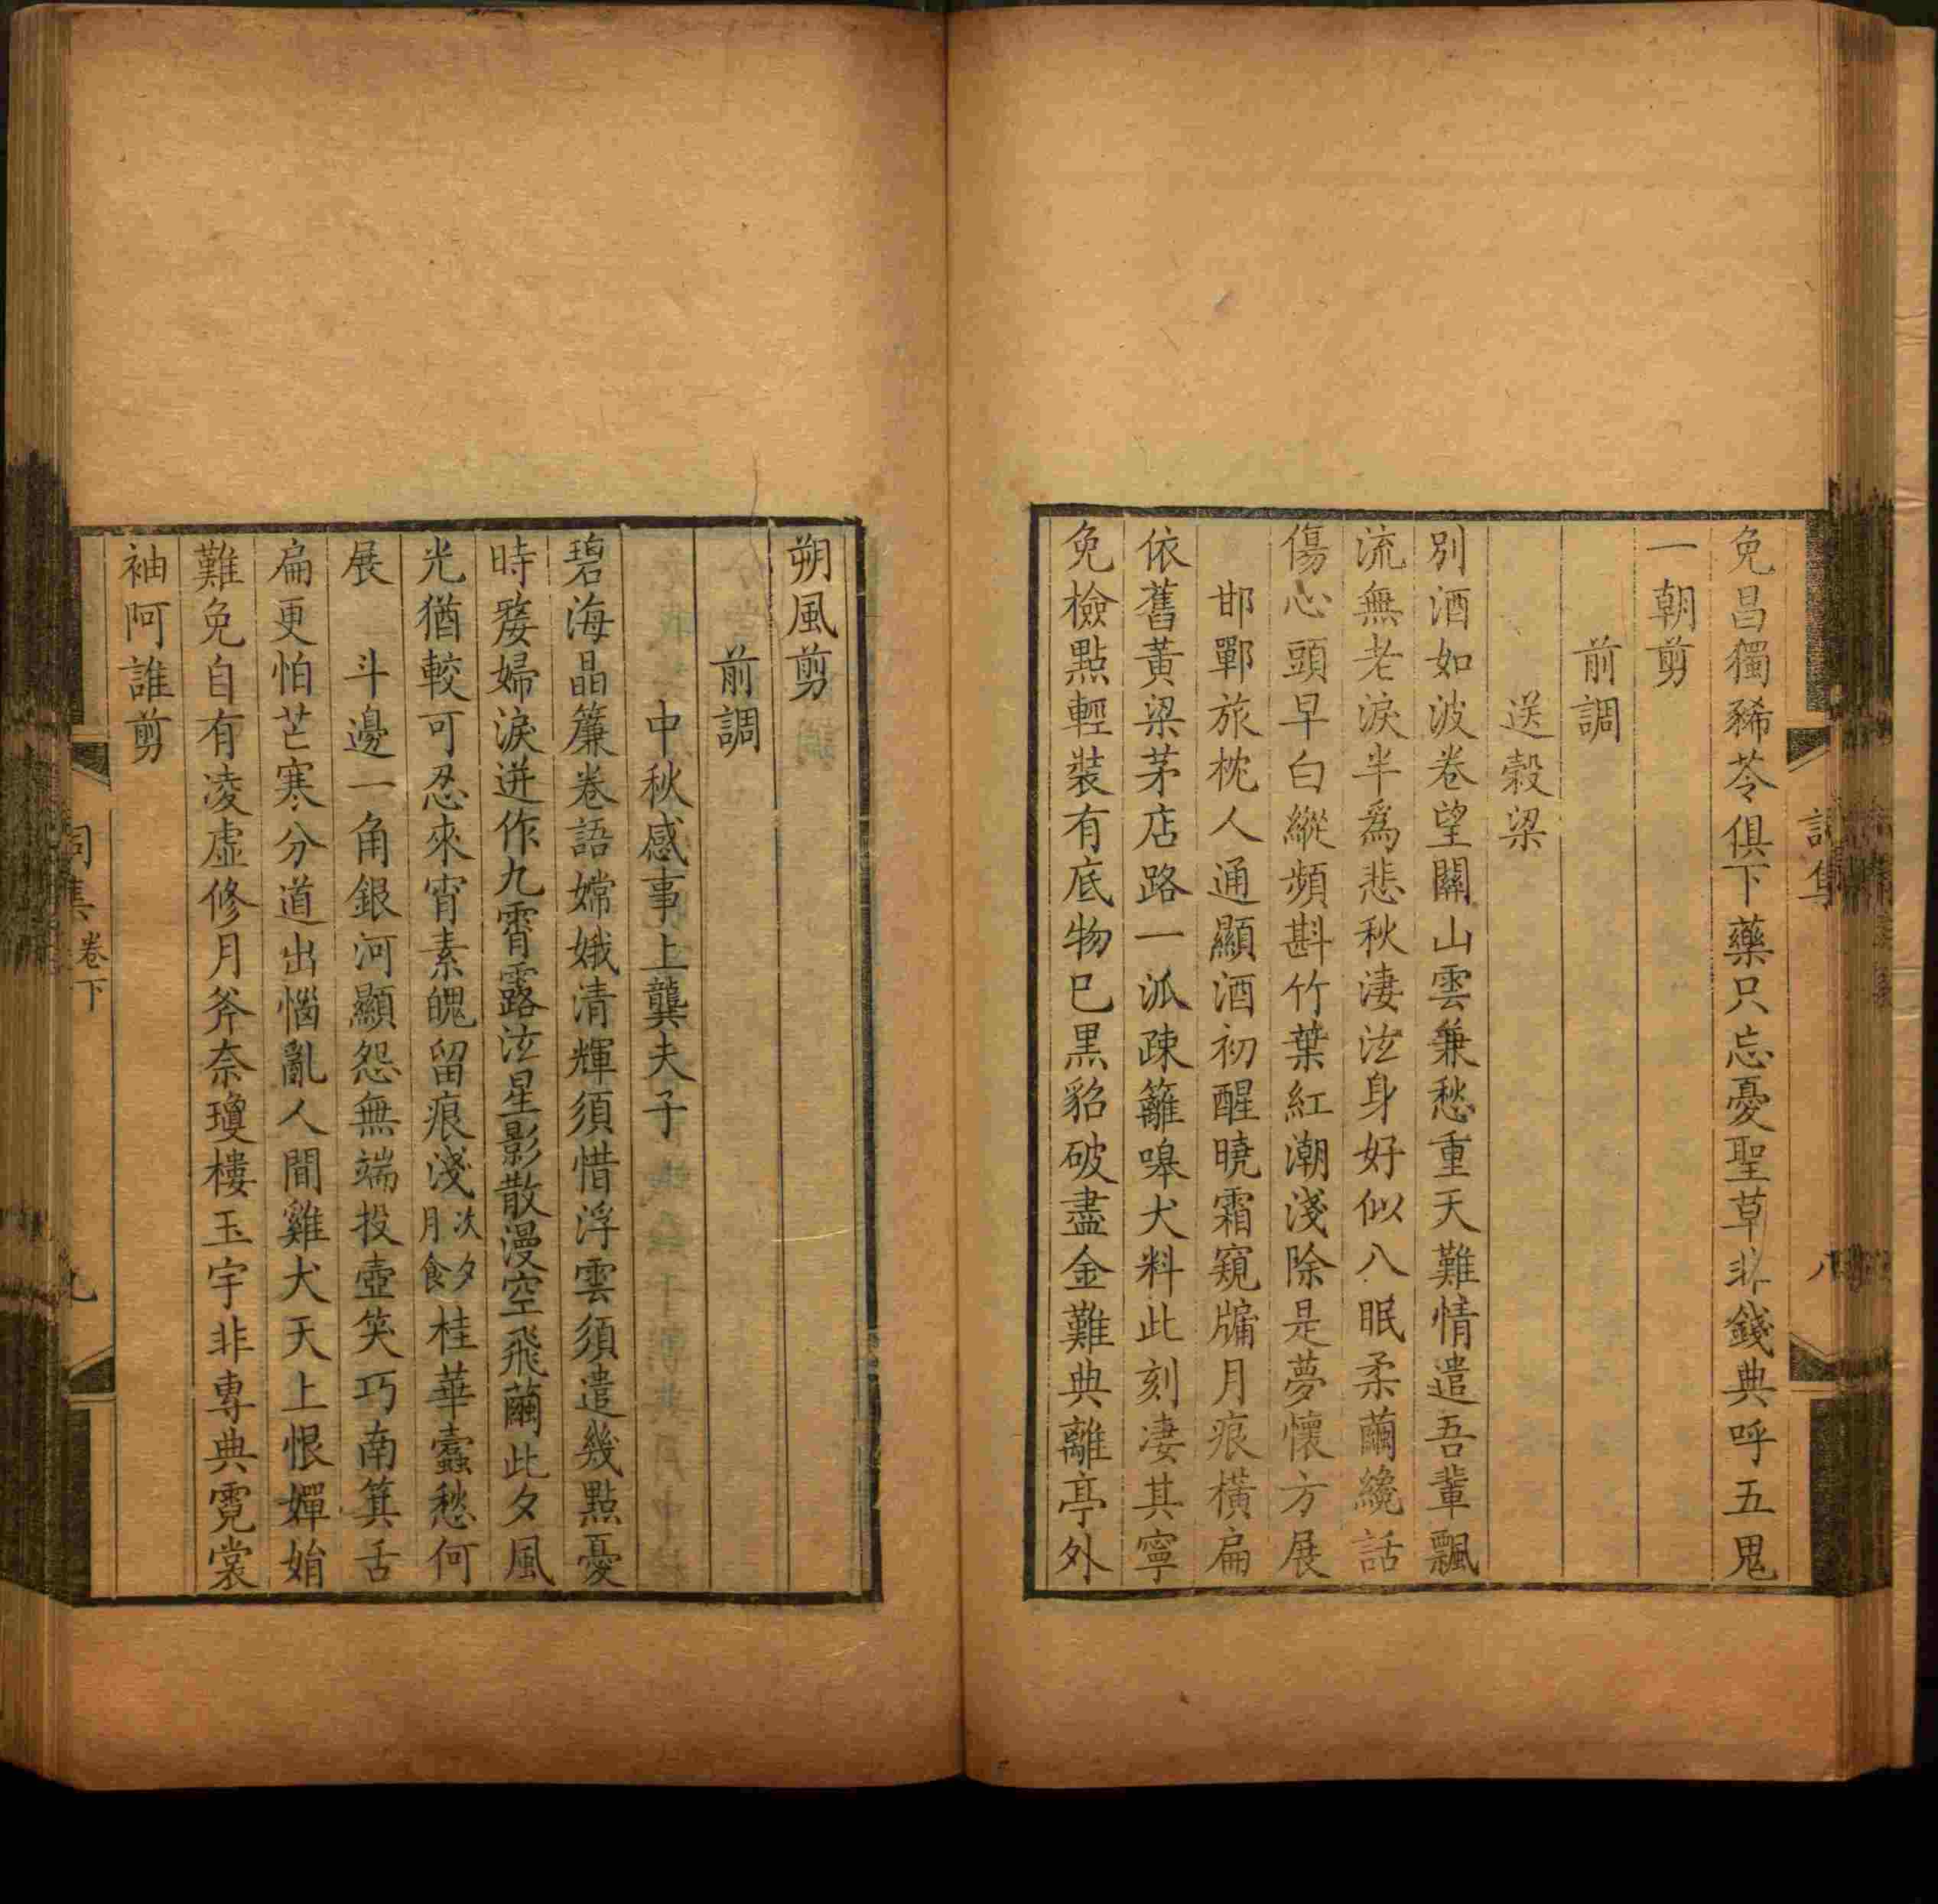 免昌獨豨苓俱下藥只忘憂聖草非錢典呼五鬼
一朝剪
前調
送穀梁
別酒如波卷望關山雲兼愁重天難情遣吾輩飄
流無老淚半爲悲秋淒泫身好似八眠柔繭纔話
傷心頭早白縱頻斟竹葉紅潮淺除是夢懷方展
邯鄲旅枕人通顯酒初醒曉霜窺牖月痕橫扁
依舊黃梁茅店路一派疎籬嘷犬料此刻淒其寧
免檢點輕裝有底物已黑貂破盡金難典離亭外
朔風剪
前調
中秋感事上龔夫子
碧海晶簾卷語嫦娥清輝須惜浮雲須遣幾點憂
時嫠婦淚迸作九霄露泫星影散漫空飛繭此夕風
光猶較可忍來宵素魄留痕淺次夕月食桂華蠹愁何
展 斗邊一角銀河顯怨無端投壺笑巧南箕舌
扁更怕芒寒分道出惱亂人間雞犬天上恨嬋娟
難免自有凌虛修月斧奈瓊樓玉宇非專典霓裳
袖阿誰剪
詞集 卷下
九